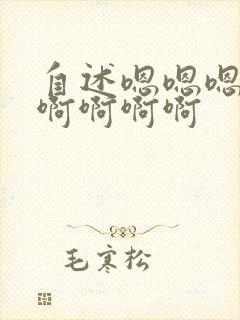 自述嗯嗯嗯
啊啊啊啊
毛寒松